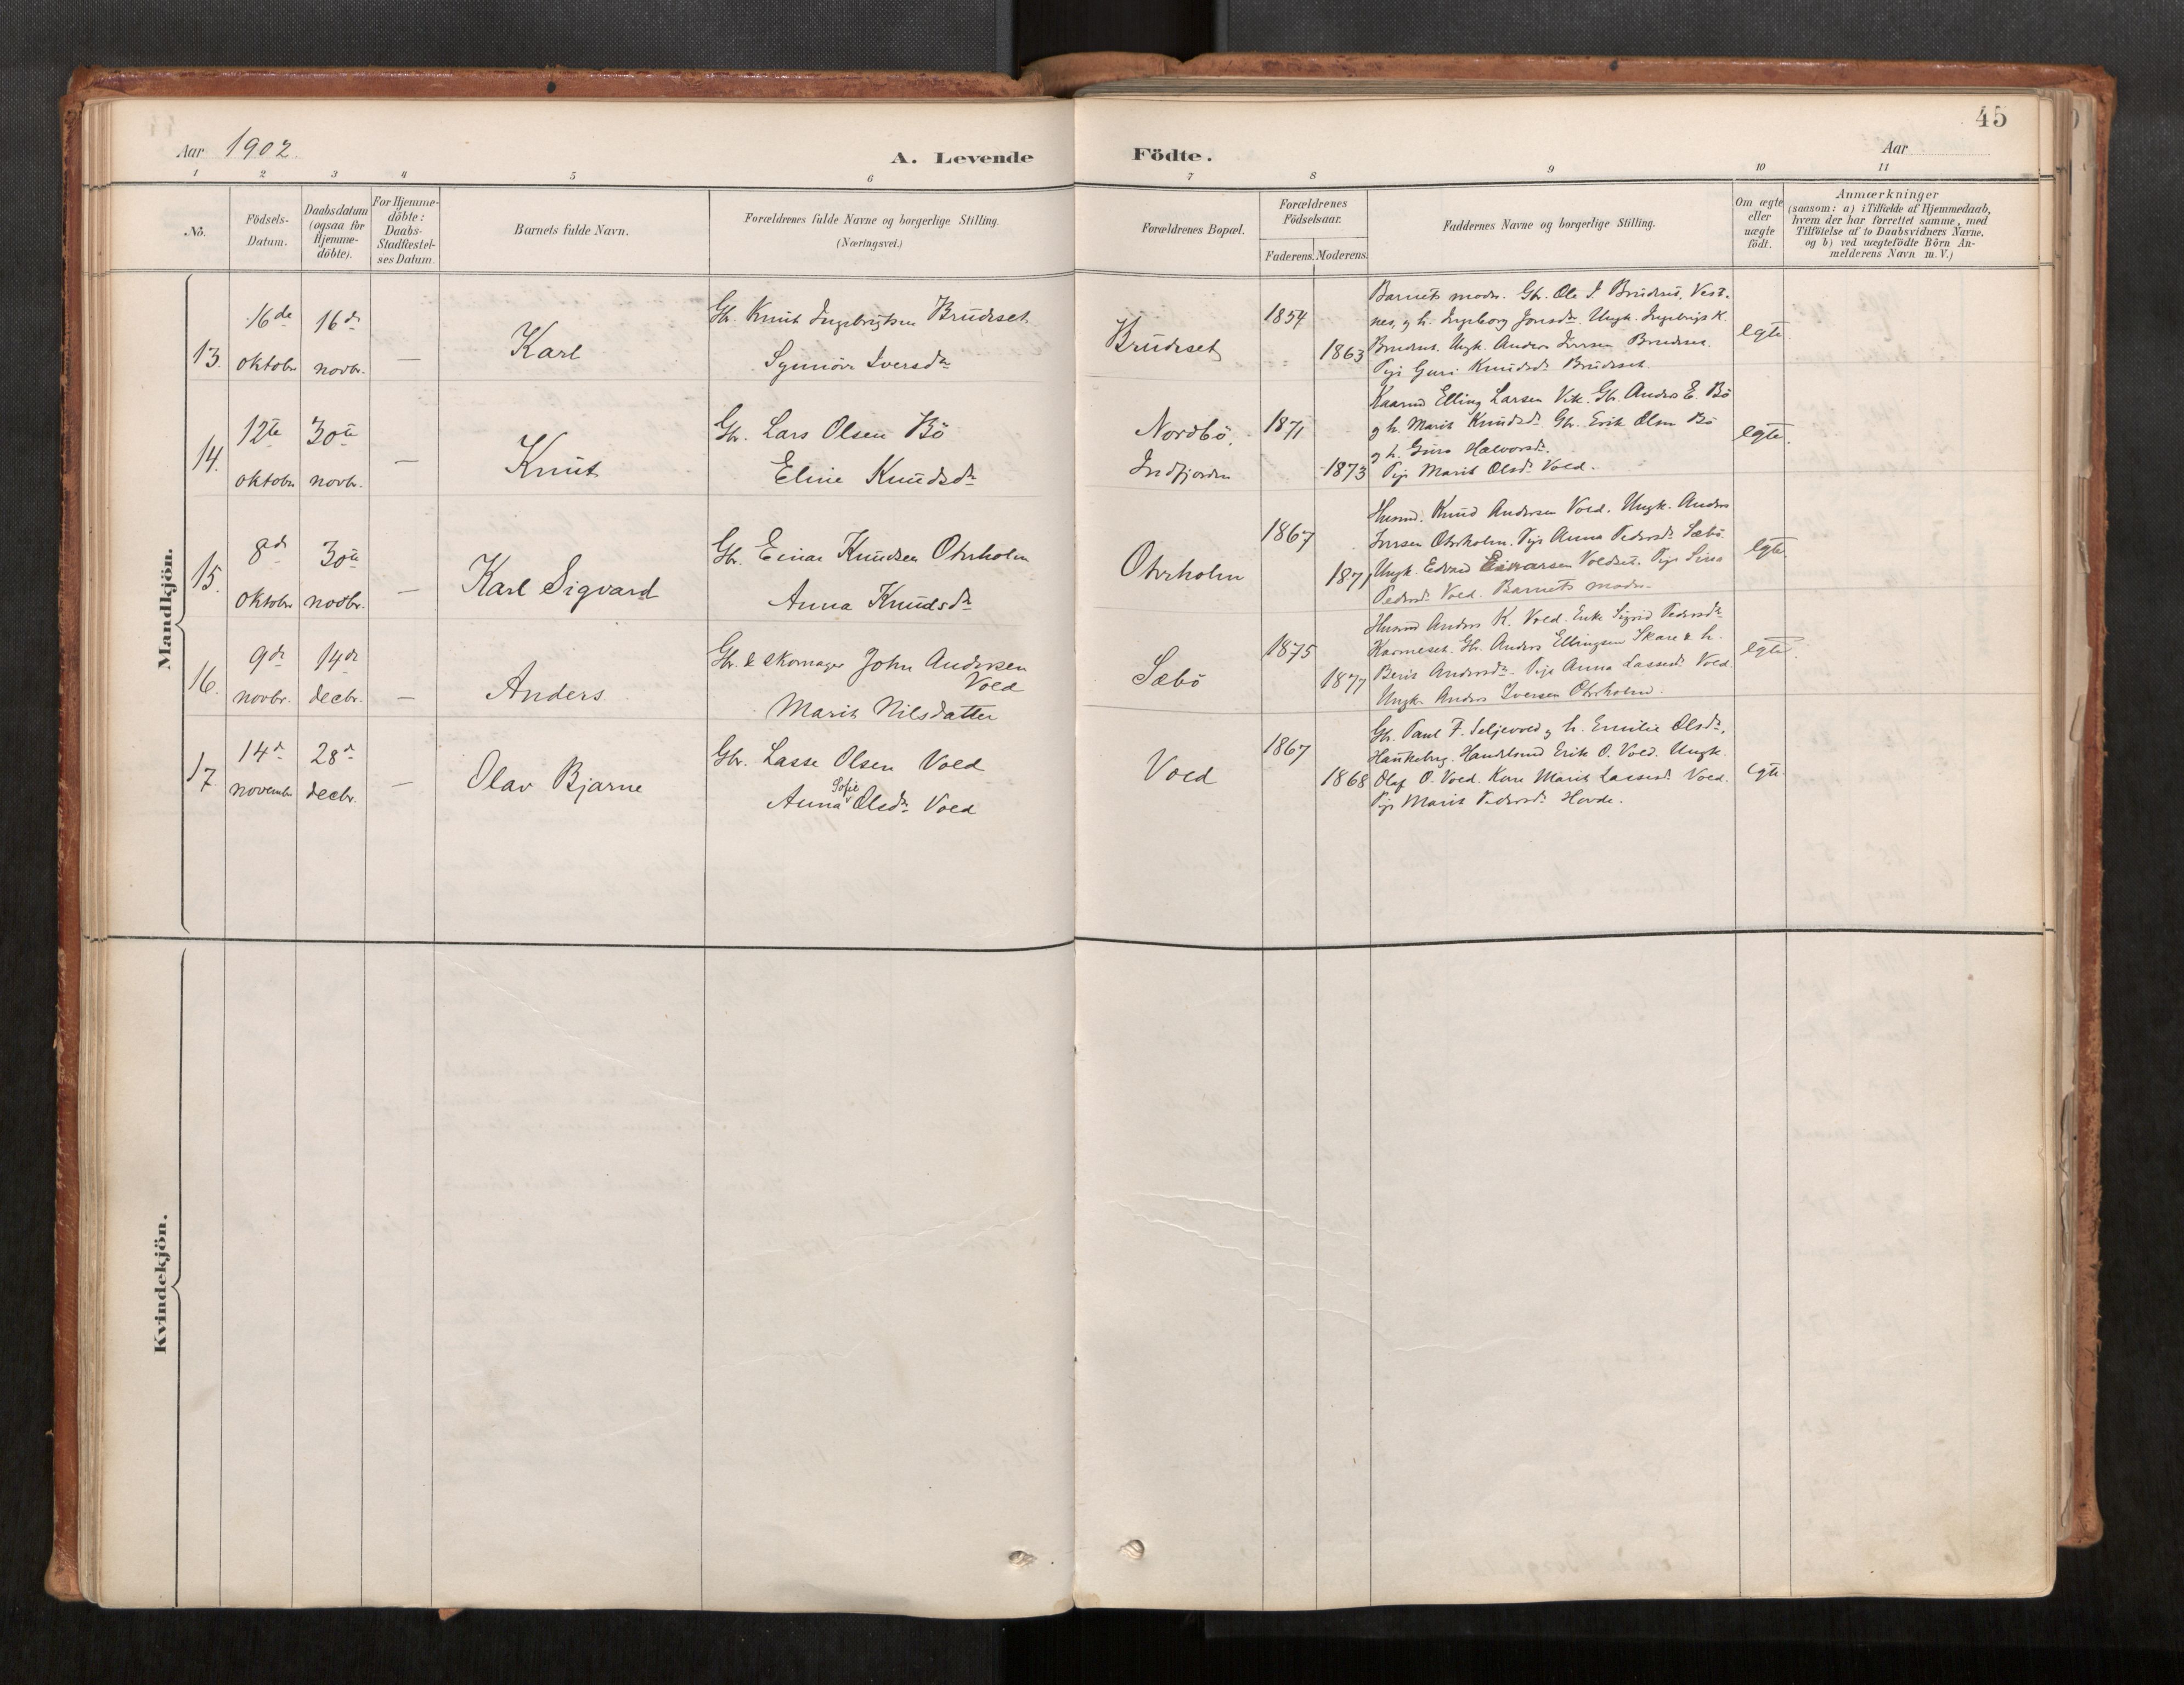 45
Aar 1902.
A. Levende Födte.
Aar
1 2 3 4 5 6 7 8 9 10 11
No.
Födsels-Datum.
Daabsdatum (ogsaa for Hjemme-döbte).
For Hjemme-döbte: Daabs-Stadfæstel-ses Datum.
Barnets fulde Navn.
Forældrenes fulde Navne og borgerlige Stilling.
(Næringsvei.)
Forældrenes Bopæl.
Forældrenes Födselsaar.
Faderens. Moderens.
Faddernes Navne og borgerlige Stilling.
Om ægte eller uægte födt.
Anmærkninger
(saasom: a) i Tilfælde af Hjemmedaab,
hvem der har forrettet samme, med
Tilföielse af to Daabsvidners Navne.
og b) ved uægtefödte Börn An-
melderens Navn m. V.)
Mandkjön.
13. 16de oktobr 16de novbr. — Karl
Gbr. Knut Ingebrigtsen Brudeset
Synnöve Iversdr
Brudeset 1854 1863
Barnets moder. Gbr. Ole I. Brudeset, Vest-
nes, g h. Ingeborg Jonsdr. Ungk. Ingebrigt K.
Brudeset. Ungk. Anders Iversen Brudeset.
Pige Guri Knudsdr Brudeset.
egte.
14. 12te oktobr 30te novbr. — Knut
Gbr. Lars Olsen Bö
Eline Knudsdr
Nordbö, Indfjorden 1871 1873
Kaarm Elling Larsen Vik. Gbr. Anders E. Bö
g h. Marit Knudsdr. Gbr. Erik Olsen Bö
g h. Guro Halvorsdr.
Pige Marit Olsdr Vold.
egte.
15. 8de oktobr 30te novbr. — Karl Sigvard
Gbr. Einar Knudsen Ohrholm
Anna Knudsdr
Ohrholm 1867 1871
Husmd. Knud Andersen Vold. Ungk. Anders
Iversen Ohrholm. Pige Anna Pedersdr Sæbö.
Ungk. Edvard Einarsen Voldset. Pige Sina
Pedersdr Vold. Barnets moder.
egte
16. 9de novbr. 14de decbr. — Anders
Gbr. & skomager John Andersen
Vold
Marit Nilsdatter
Sæbö 1875 1877
Husmd Anders K. Vold. Enke Sigrid Pedersdr
Kormeset. Gbr. Anders Ellingsen Skare & h.
Berit Andersdr. Pige Anna Lassesdr Vold
Ungk. Anders Iversen Ohrholm.
egte.
17. 14de novembr 28de decbr. — Olav Bjarne
Gbr. Lasse Olsen Vold
Anna Sofie Olsdr Vold
Vold 1867 1868
Gbr. Paul F. Seljevold g h. Emilie Olsdr,
Haukebug. Handelsmd Erik O. Vold. Ungk.
Olaf O. Vold. Kone Marit Lassesdr Vold.
Pige Marit Pedersdr Hovde.
egte.
Kvindekjön.